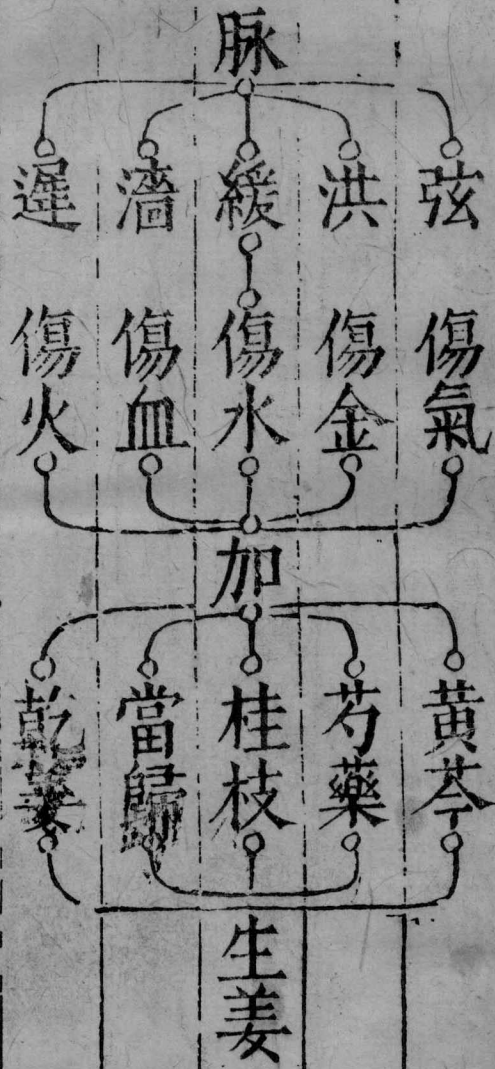 脉
弦 洪 緩 濇 遲
傷氣 傷金 傷水 傷血 傷火
加
黃芩 芍藥 桂枝 當歸 乾姜
生姜